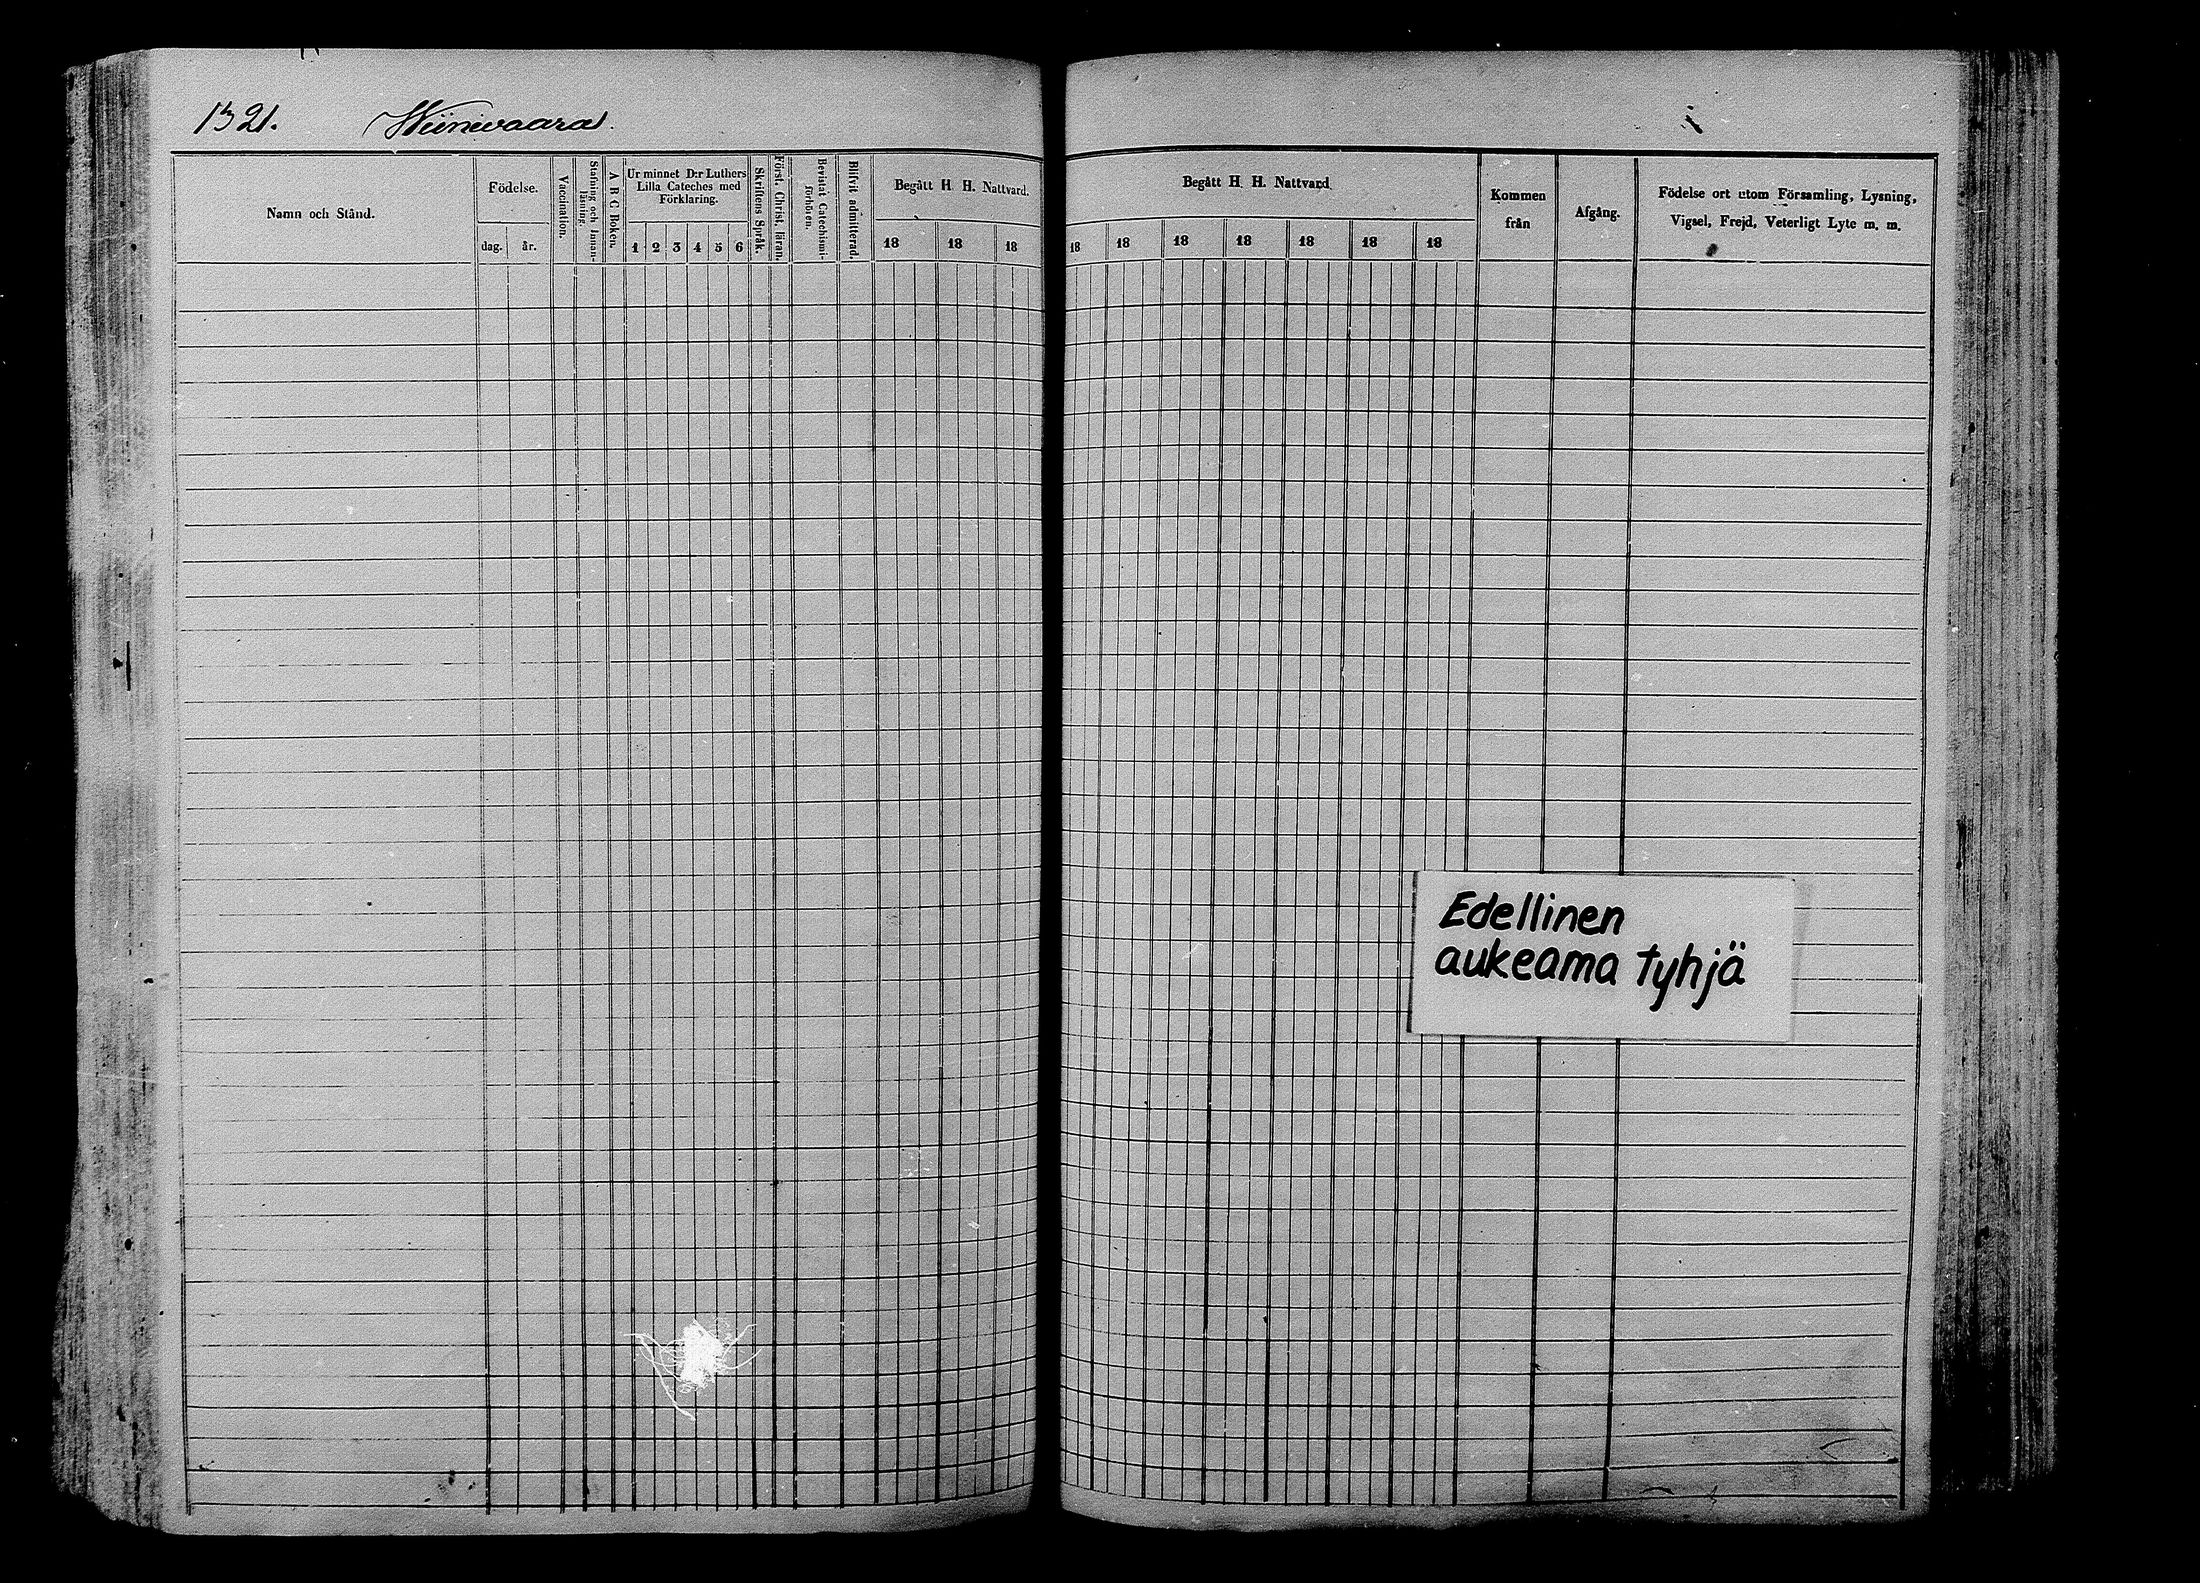 1321. Wiinivaara.
Namn och Stånd.
Födelse.
dag. år.
Vaccination.
Stafning och Innan-
läsning.
A B C Boken.
Ur minnet D:r Luthers
Lilla Cateches med
Förklaring.
1 2 3 4 5 6
Skriftens Språk.
Först. Christ. läran.
Bevistat Catechismi-
förhören.
Blifvit admitterad.
Begått H. H. Nattvard.
18 18 18
Begått H. H. Nattvard.
18 18 18 18 18 18 18
Kommen
från
Afgång.
Födelse ort utom Församling, Lysning,
Vigsel, Frejd, Veterligt Lyte m. m.
Edellinen
aukeama tyhjä